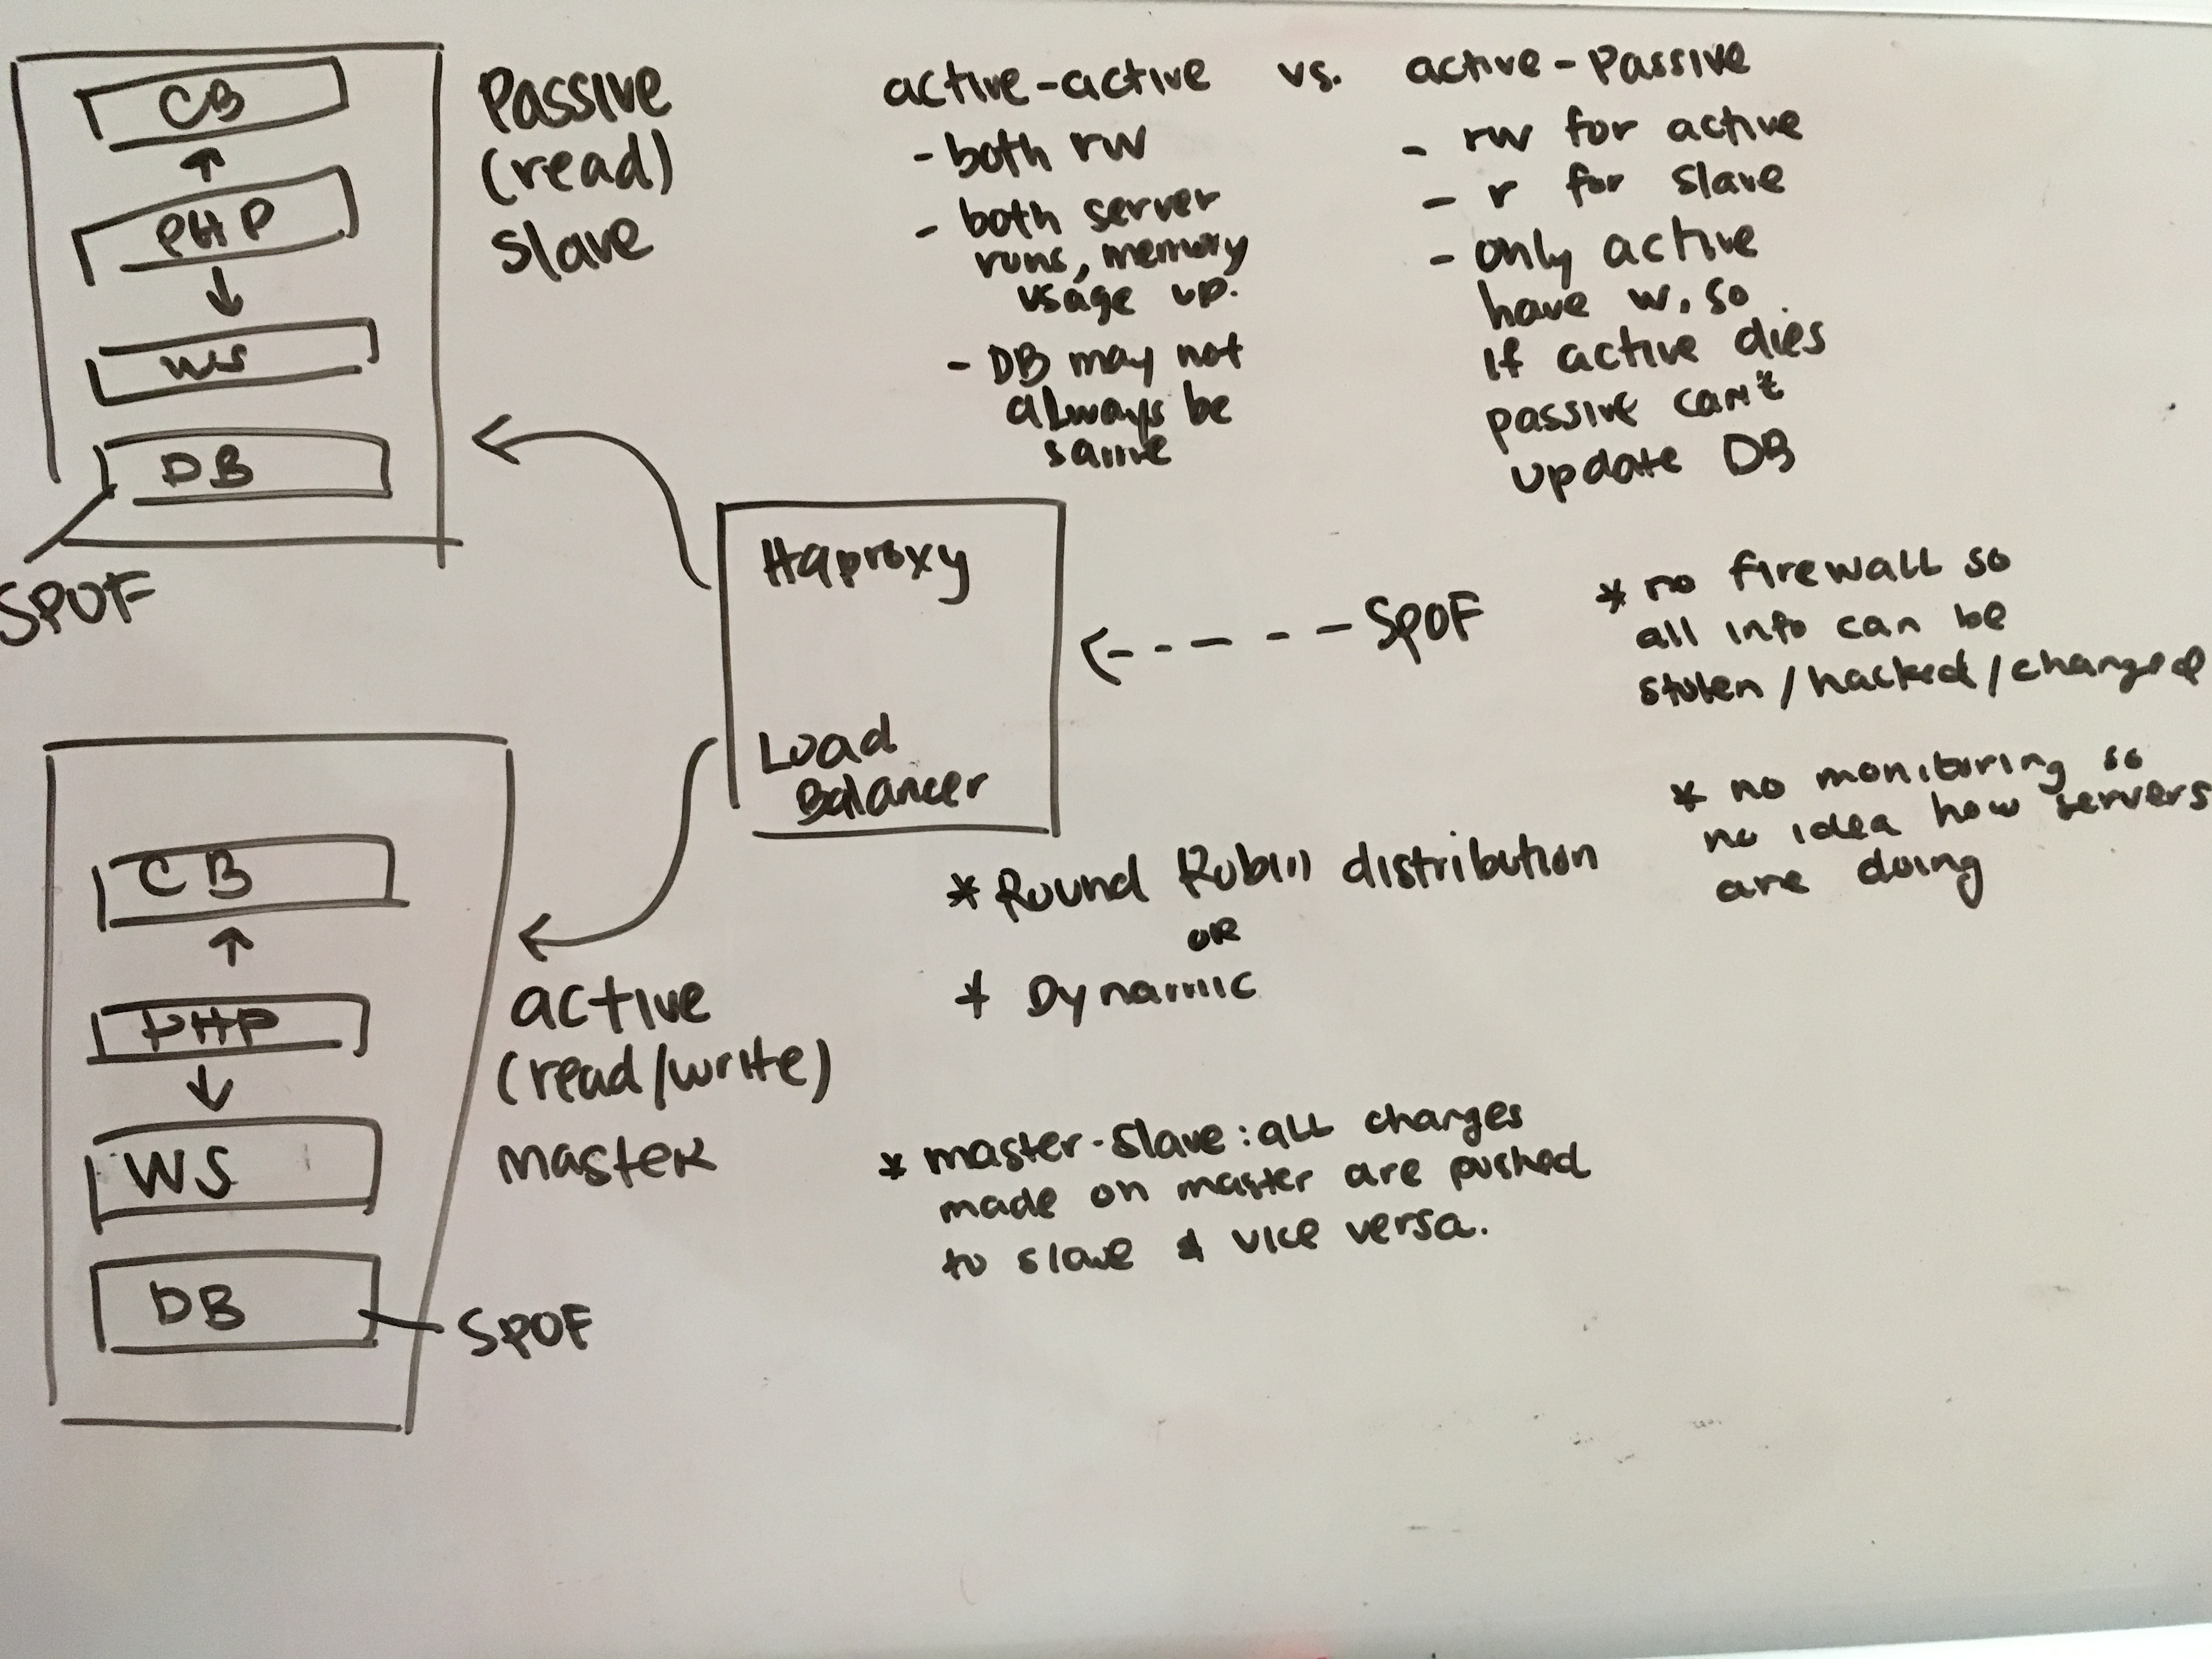 CB
PHP
WS
DB
SPOF
Passive
(read)
slave
active-active vs. active-Passive
- both rw
- both server
runs, memory
usage up.
- DB may not
always be
same
- rw for active
- r for slave
- only active
have w, so
if active dies
passive can't
update DB
Haproxy
Load
Balancer
SPOF
* no firewall so
all info can be
stolen/hacked/changed
* no monitoring so
no idea how servers
are doing
* Round Robin distribution
OR
* Dynamic
CB
PHP
WS
DB
SPOF
active
(read/write)
master
* master-slave: all changes
made on master are pushed
to slave & vice versa.